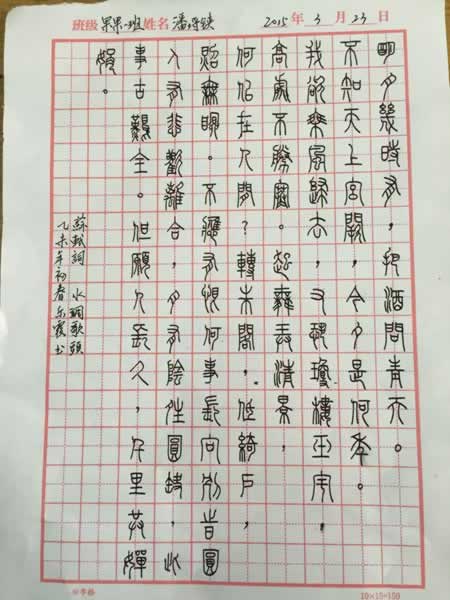 班级 果果一班 姓名 潘
2015 年 3 月 23 日
明月幾時有，把酒問青天。
不知天上宮闕，今夕是何年。
我欲乘風歸去，又恐瓊樓玉宇，
高處不勝寒。起舞弄清影，
何似在人間？轉朱閣，低綺戶，
照無眠。不應有恨何事長向别時圓
人有悲歡離合，月有陰晴圓缺，此
事古難全。但願人長久，千里共嬋
娟。
蘇軾詞 水調歌頭
乙未年初春乐霞书
10×15=150